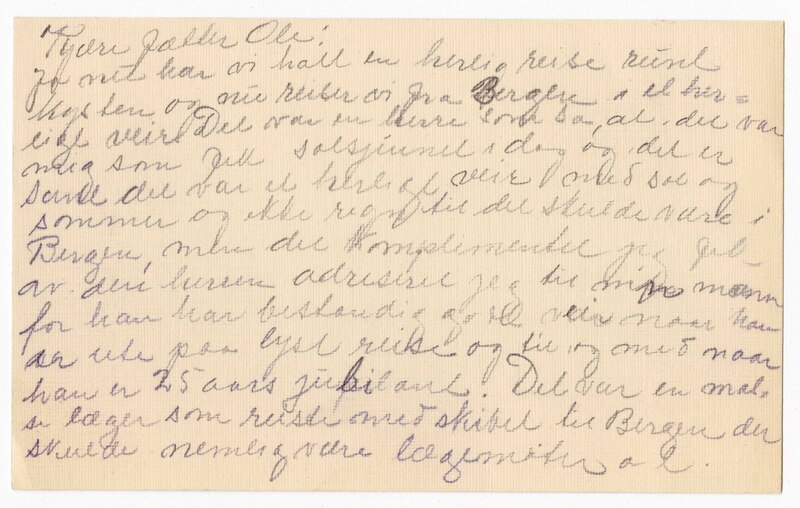 Kjære Fætter Ole!
Ja nu har vi hatt en herlig reise rundt
Kysten og nu reiser vi fra Bergen i et her=
lige veir. Det var en herre som sa, at det var
meg som fik solsjinnet i dag og det er
sandt det var et herlige veir med sol og
sommer og ikke regn til det skulde være i
Bergen, men det Komplimentet jeg fik
av den herren adriserte jeg til min mann
for han har bestandig godt veir naar han
er ute paa lyst reise og til og med naar
han er 25 aars jubilant. Det var en mas-
se læger som reiste med skibet til Bergen der
skulde nemlig være lægemøte